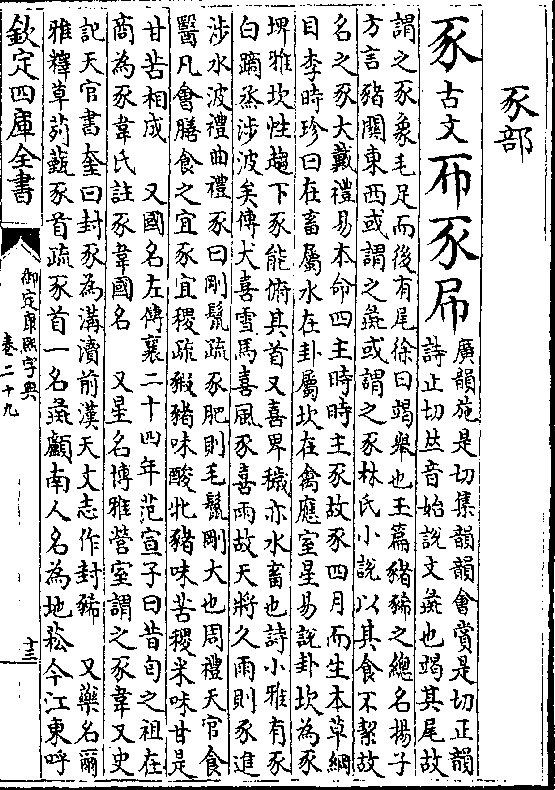 豕部
豕古文𢁓豕𡰯廣韻施是切集韻韻會賞是切正韻
詩止切𠀤音始說文彘也竭其尾故
謂之豕象毛足而後有尾徐曰竭舉也玉篇豬豨之總名揚子
方言豬關東西或謂之彘或謂之豕林氏小說以其食不絜故
名之豕大戴禮易本命四主時時主豕故豕四月而生本草綱
目李時珍曰在畜屬水在卦屬坎在禽應室星易說卦坎為豕
埤雅坎性趨下豕能俯其首又喜卑穢亦水畜也詩小雅有豕
白蹢烝涉波矣傳犬喜雪馬喜風豕喜雨故天將久雨則豕進
涉水波禮曲禮豕曰剛鬣疏豕肥則毛鬣剛大也周禮天官食
醫凡會膳食之宜豕宜稷疏豭豬味酸牝豬味苦稷米味甘是
甘苦相成　又國名左傳襄二十四年范宣子曰昔匄之祖在
商為豕韋氏註豕韋國名　又星名博雅營室謂之豕韋又史
記天官書奎曰封豕為溝瀆前漢天文志作封豨　又藥名爾
雅釋草茢薽豕首疏豕首一名彘顱南人名為地菘今江東呼
欽定四庫全書
御定康熙字典
卷二十九
十三